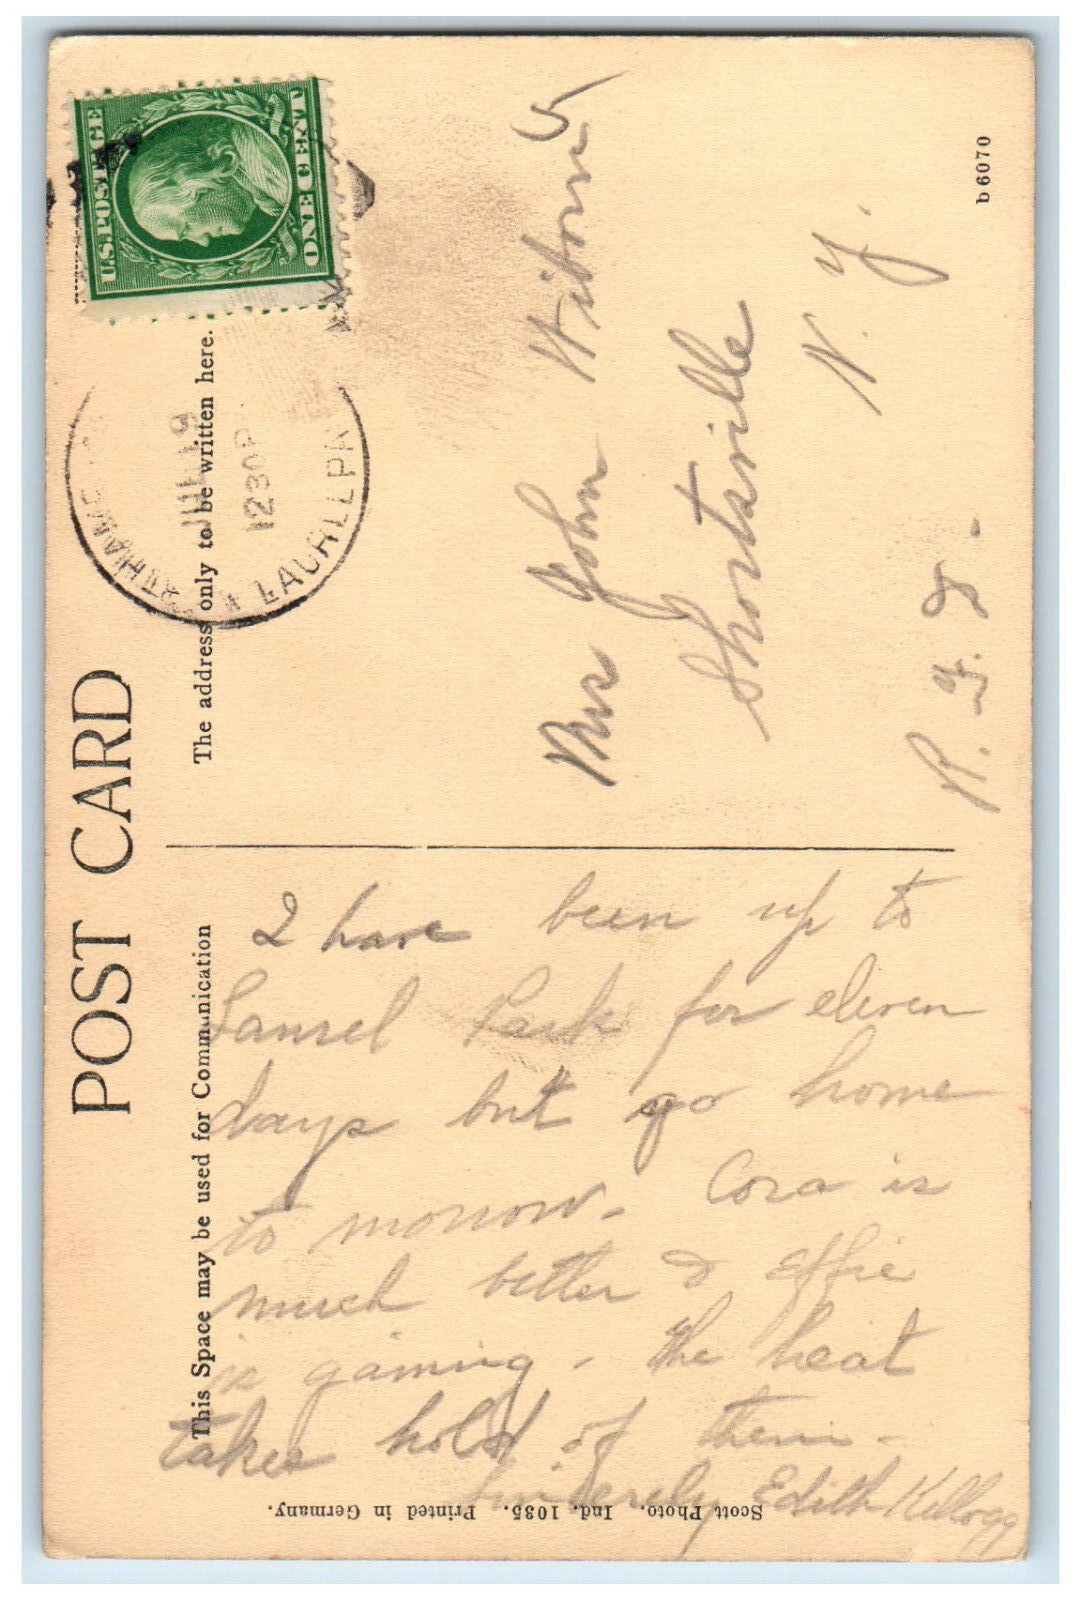 POST CARD
This Space may be used for Communication
The address only to be written here.
U.S. POSTAGE
ONE CENT
JUL 19
12 30 P
LAUREL PK
I have been up to
Laurel Park for eleven
days but go home
to morrow. Cora is
much better & Effie
is gaining. The heat
takes hold of them.
Sincerely Edith Kellogg
Mrs John
Shortsville
N. Y.
R. F. 8.
b 6070
Scott Photo. Ind. 1035. Printed in Germany.